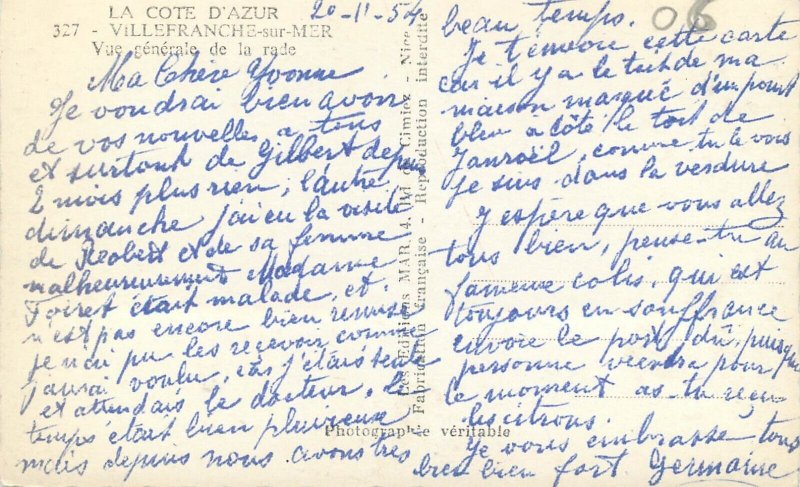 LA COTE D'AZUR
20-11-54
327 - VILLEFRANCHE-sur-MER
Vue générale de la rade
Ma Chère Yvonne
Je voudrai bien avoir
de vos nouvelles a tous
et surtout de Gilbert depuis
2 mois plus rien, l'autre
dimanche j'ai eu la visite
de Robert et de sa femme
malheureusement Madame
Foiret était malade, et
n'est pas encore bien remise
je n'ai pu les recevoir comme
j'aurai voulu, car j'étais seule
et attendais le docteur, le
temps était bien pluvieux
mais depuis nous avons très
Les Editions MAR, 14, Cimiez - Nice
Fabrication française - Reproduction interdite
Photographie véritable
06
beau temps.
Je t'envoie cette carte
car il y a le toit de ma
maison marqué d'un point
bleu à côté le toit de
comme tu le vois
Je suis dans la verdure
J'espère que vous allez
tous bien, pense-tu au
fameux colis, qui est
toujours en souffrance
envoie le port dû, puisque
personne viendra pour
le moment as-tu reçu
les citrons.
Je vous embrasse tous
bien bien fort. Germaine